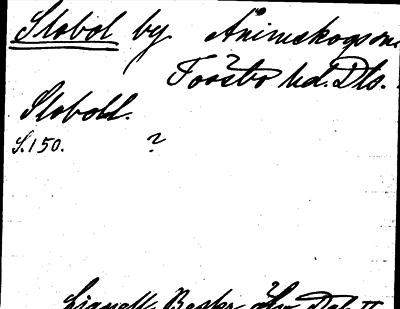 Slobol by Ånimskogs sn.
Tössbo hd. Dls.
Sloboll.
S. 150. ?
Lignell Beskr. öfv. Dal II